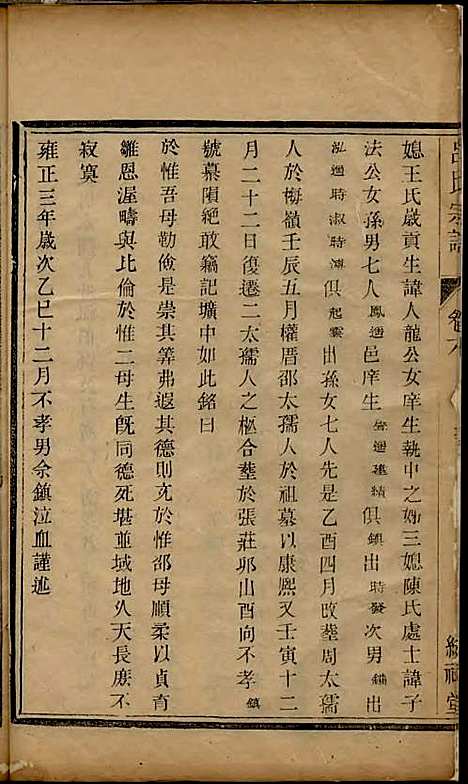 呂氏宗譜 卷六
媳王氏歲貢生諱人龍公女庠生執中之姊三媳陳氏處士諱子
法公女孫男七人鳳迴邑庠生 迴建績俱鎮出時發次男鏽出
泓迴時淑時溥俱起雲出孫女七人先是乙酉四月改塟周太孺
人於梅嶺壬辰五月權厝邵太孺人於祖墓以康熙又壬寅十二
月二十二日復遷二太孺人之柩合塟於張莊邜山酉向不孝鎮
號慕隕絕敢竊記壙中如此銘曰
於惟吾母勤儉是崇其筭弗遐其德則充於惟邵母順柔以貞育
雛恩渥疇與比倫於惟二母生旣同德死堪並域地久天長庶不
寂寞
雍正三年歲次乙巳十二月不孝男余鎮泣血謹述